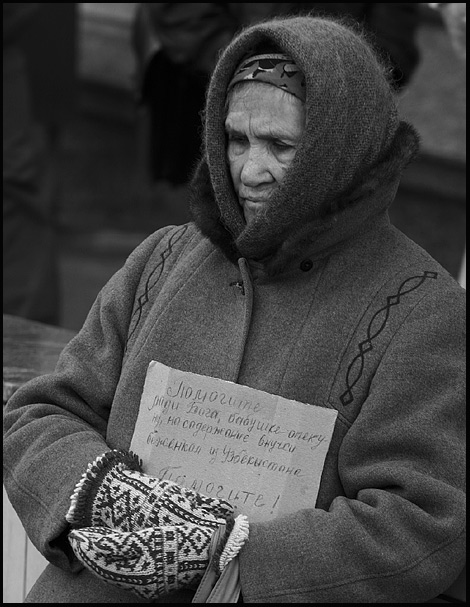 Помогите
ради Бога, бабушке опеку
ну, на содержание внучки
беженка из Узбекистана
Помогите!